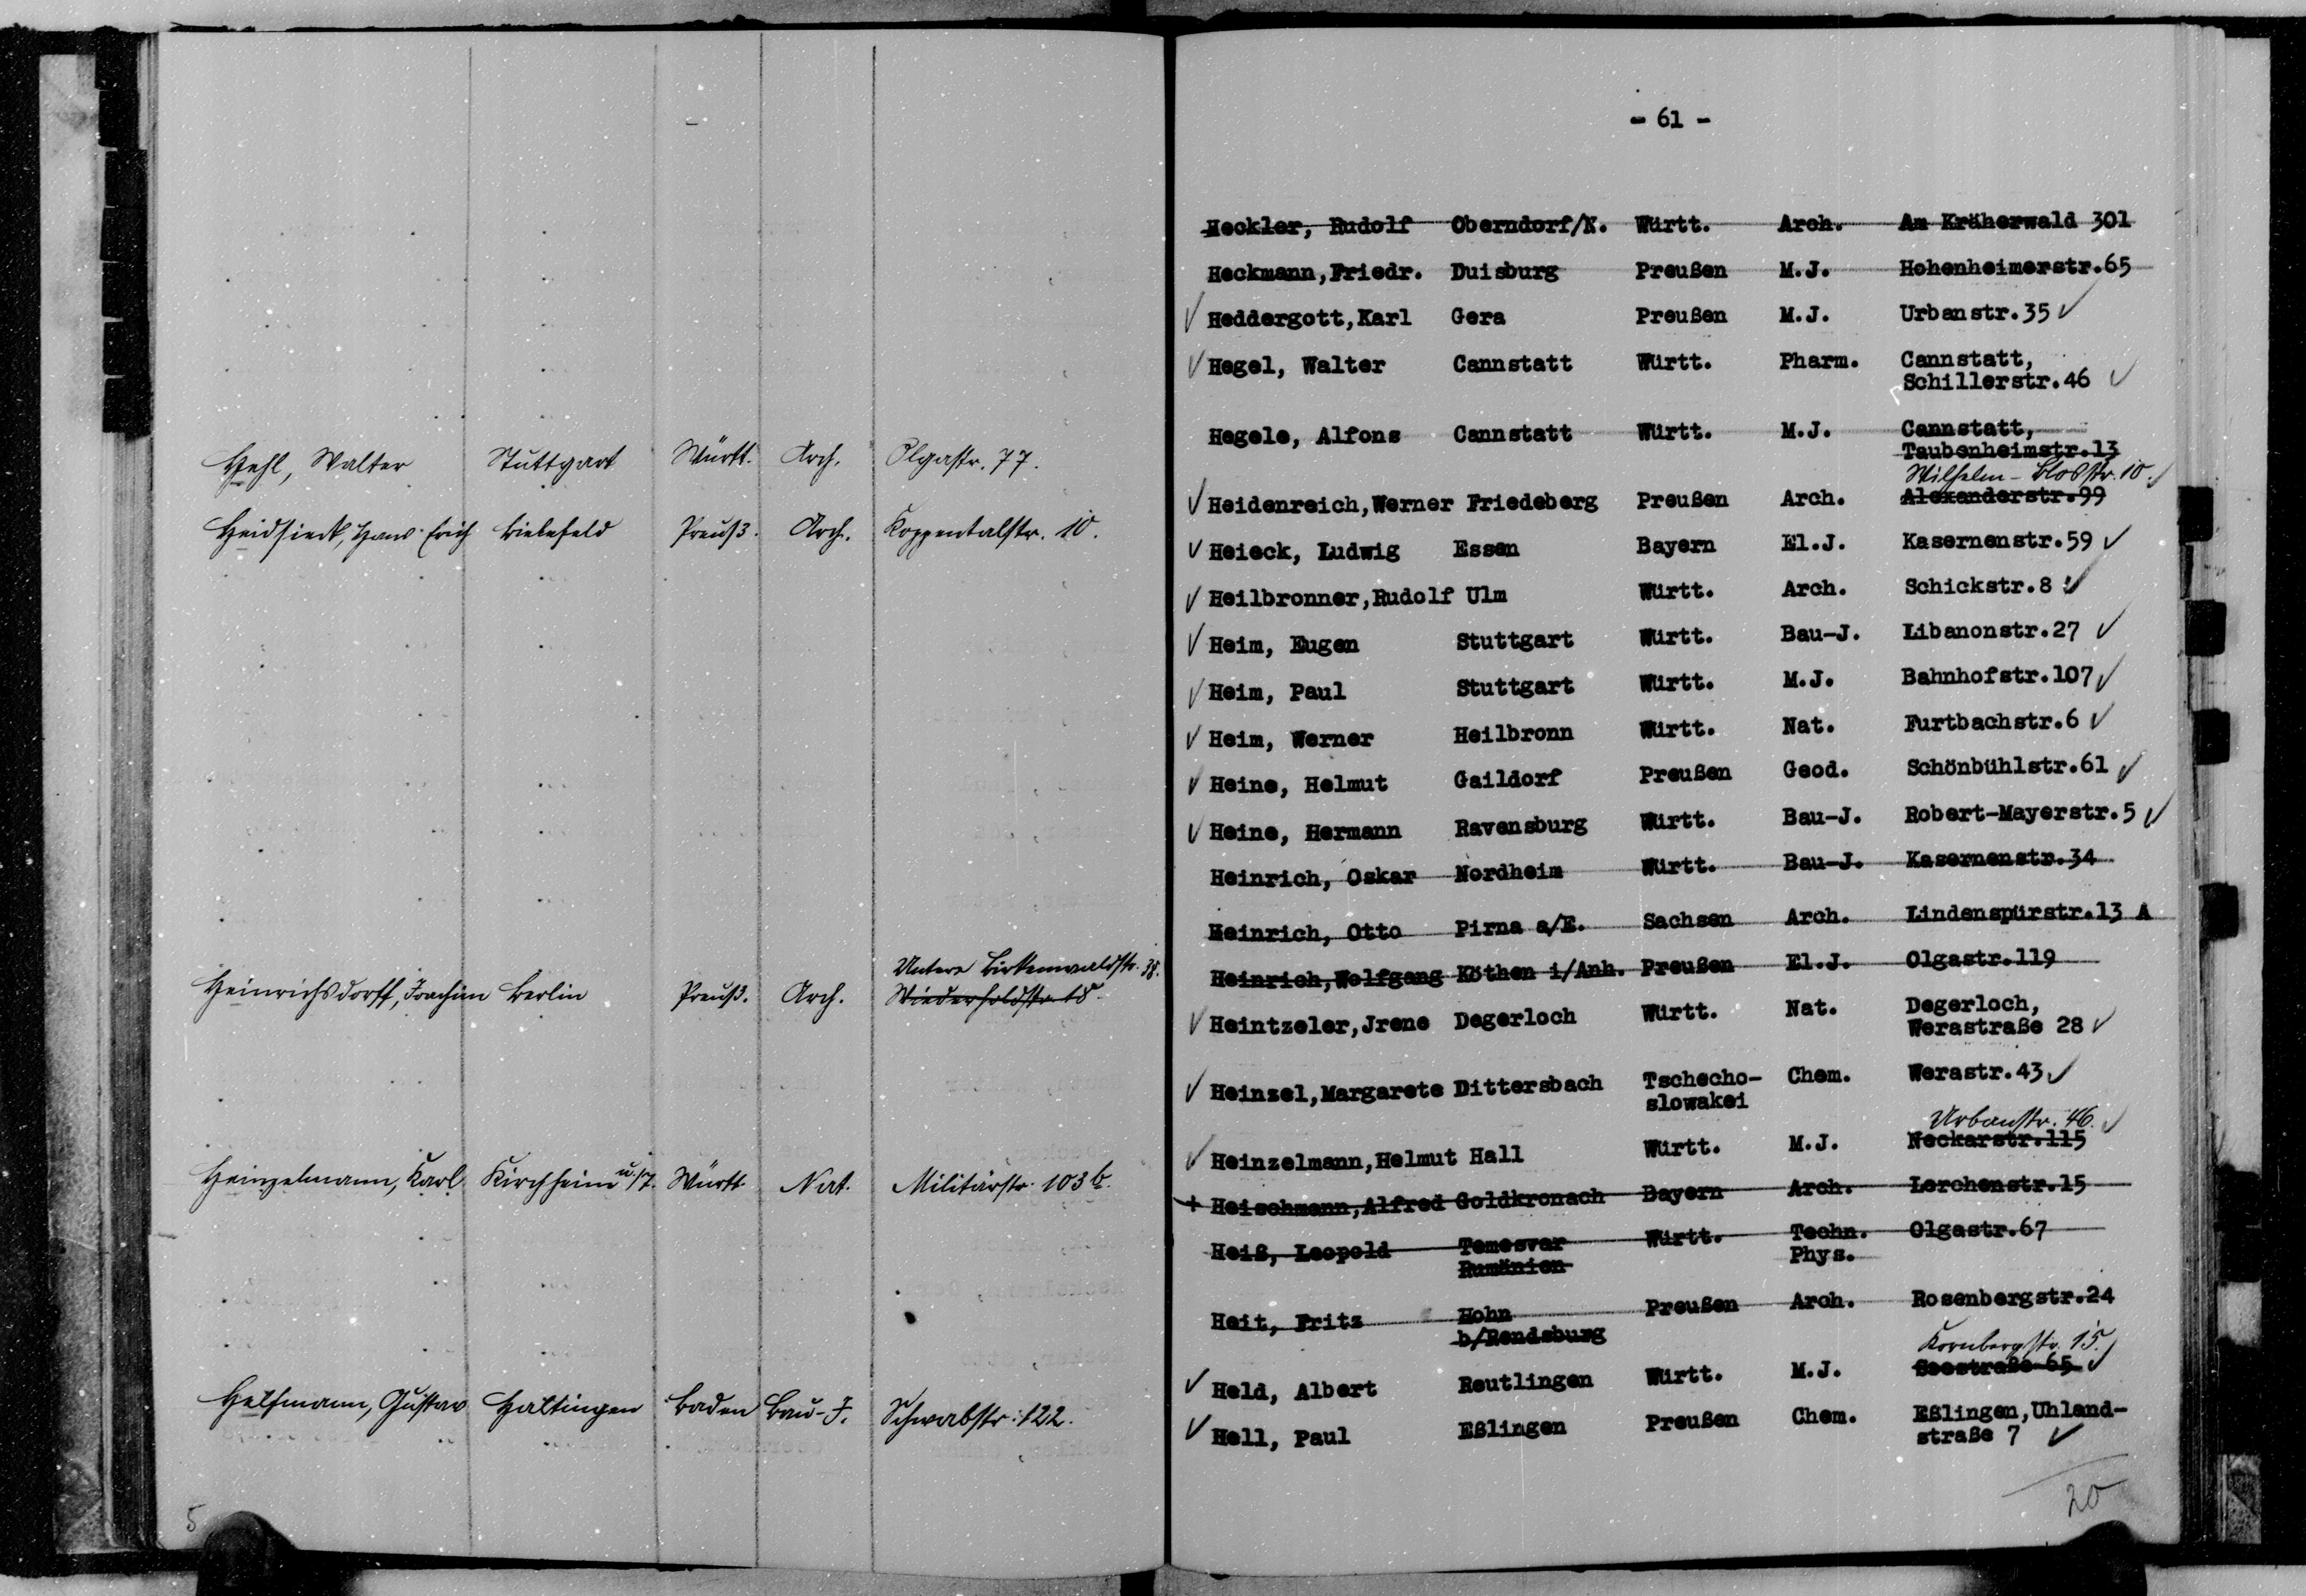 Hehl, Walter Stuttgart Württ. Arch. Olgastr. 77.
Heidsieck, Hans-Erich Bielefeld Preuß. Arch. Koppentalstr. 10.
Untere Birkenwaldstr. 38.
Heinrichsdorff, Joachim Berlin Preuß. Arch. Wiederholdstr. 18.
Heinzelmann, Karl Kirchheim u/T. Württ. Nat. Militärstr. 103 b.
Helfmann, Gustav Haltingen Baden Bau-J. Schwabstr. 122.
5
- 61 -
Heckler, Rudolf Oberndorf/N. Württ. Arch. Am Kräherwald 301
Heckmann, Friedr. Duisburg Preußen M.J. Hohenheimerstr.65
Heddergott, Karl Gera Preußen M.J. Urbanstr.35
Hegel, Walter Cannstatt Württ. Pharm. Cannstatt,
Schillerstr.46
Hegele, Alfons Cannstatt Württ. M.J. Cannstatt,
Taubenheimstr.13
Wilhelm-Blosstr. 10.
Heidenreich, Werner Friedeberg Preußen Arch. Alexanderstr.99
Heieck, Ludwig Essen Bayern El.J. Kasernenstr.59
Heilbronner, Rudolf Ulm Württ. Arch. Schickstr.8
Heim, Eugen Stuttgart Württ. Bau-J. Libanonstr.27
Heim, Paul Stuttgart Württ. M.J. Bahnhofstr.107
Heim, Werner Heilbronn Württ. Nat. Furtbachstr.6
Heine, Helmut Gaildorf Preußen Geod. Schönbühlstr.61
Heine, Hermann Ravensburg Württ. Bau-J. Robert-Mayerstr.5
Heinrich, Oskar Nordheim Württ. Bau-J. Kasernenstr.34
Heinrich, Otto Pirna a/E. Sachsen Arch. Lindenspürstr.13 A
Heinrich, Wolfgang Köthen i/Anh. Preußen El.J. Olgastr.119
Heintzeler, Jrene Degerloch Württ. Nat. Degerloch,
Werastraße 28
Heinzel, Margarete Dittersbach Tschecho- Chem. Werastr.43
slowakei
Urbanstr. 46.
Heinzelmann, Helmut Hall Württ. M.J. Neckarstr.115
+ Heischmann, Alfred Goldkronach Bayern Arch. Lerchenstr.15
Heiß, Leopold Temesvar Württ. Techn. Olgastr.67
Rumänien Phys.
Heit, Fritz Hohn Preußen Arch. Rosenbergstr.24
b/Rendsburg
Kornbergstr. 15.
Held, Albert Reutlingen Württ. M.J. Seestraße 65
Hell, Paul Eßlingen Preußen Chem. Eßlingen, Uhland-
straße 7
20